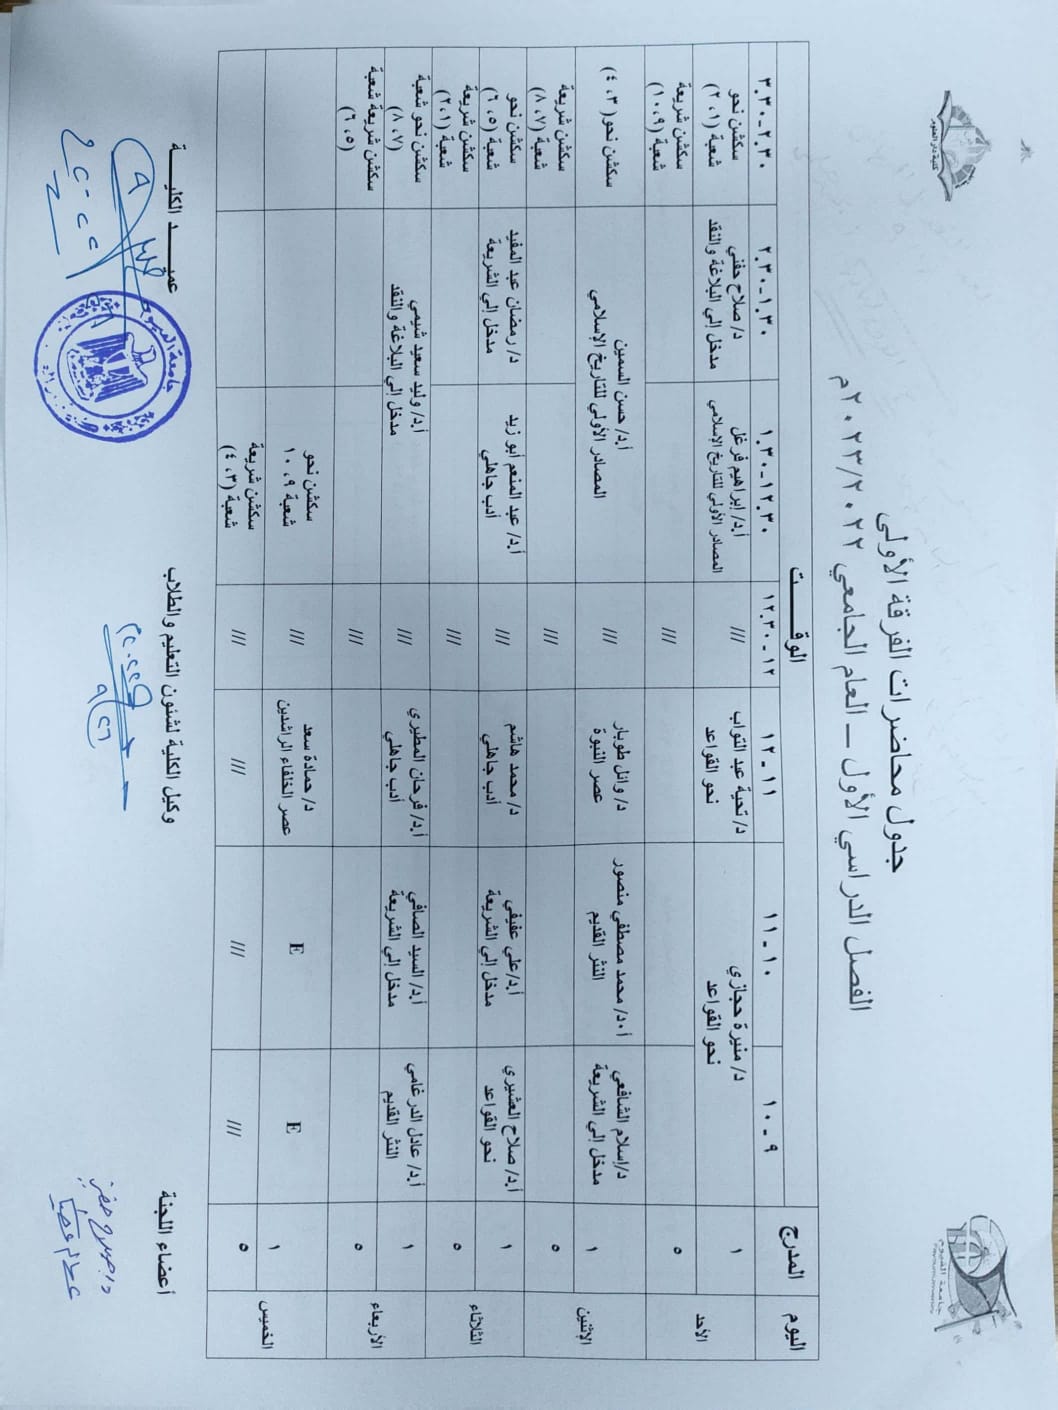 كلية دار العلوم
جامعة الفيوم
جدول محاضرات الفرقة الأولى
الفصل الدراسي الأول – العام الجامعي ٢٠٢٢/٢٠٢٣م
اليوم
المدرج
الوقــــــت
٩ - ١٠
١٠ - ١١
١١ - ١٢
١٢ - ١٢.٣٠
١٢.٣٠ - ١.٣٠
١.٣٠ - ٢.٣٠
٢.٣٠ - ٣.٣٠
الأحد
١
د/ منيرة حجازي
نحو القواعد
د/ تحية عبد التواب
نحو القواعد
///
أ.د/ إبراهيم فرغل
المصادر الأولي للتاريخ الإسلامي
د/ صلاح حفني
مدخل إلي البلاغة والنقد
سكشن نحو
شعبة (١، ٢)
٥
///
سكشن شريعة
شعبة (٩، ١٠)
الإثنين
١
د/إسلام الشافعي
مدخل إلي الشريعة
أ.د/ محمد مصطفي منصور
النثر القديم
د/ وائل طوبار
عصر النبوة
///
أ.د/ حسن السمين
المصادر الأولي للتاريخ الإسلامي
سكشن نحو( ٣، ٤)
٥
///
سكشن شريعة
شعبة (٧، ٨)
الثلاثاء
١
أ.د/ صلاح العشيري
نحو القواعد
أ.د/علي عفيفي
مدخل إلي الشريعة
د/ محمد هاشم
أدب جاهلي
///
أ.د/ عبد المنعم أبو زيد
أدب جاهلي
د/ رمضان عبد المفيد
مدخل إلي الشريعة
سكشن نحو
شعبة (٥، ٦)
٥
///
سكشن شريعة
شعبة (١، ٢)
الأربعاء
١
أ.د/ عادل الدرغامي
النثر القديم
أ.د/ السيد الصافي
مدخل إلي الشريعة
أ.د/ فرحان المطيري
أدب جاهلي
///
أ.د/ وليد سعيد شيمي
مدخل إلي البلاغة والنقد
سكشن نحو شعبة
(٧، ٨)
٥
///
سكشن شريعة شعبة
(٥، ٦)
الخميس
١
E
E
د/ حمادة سعد
عصر الخلفاء الراشدين
///
سكشن نحو
شعبة ٩، ١٠
٥
///
///
///
///
سكشن شريعة
شعبة (٣، ٤)
أعضاء اللجنة
وكيل الكلية لشئون التعليم والطلاب
عميـــــد الكليــــــة
جامعة الفيوم